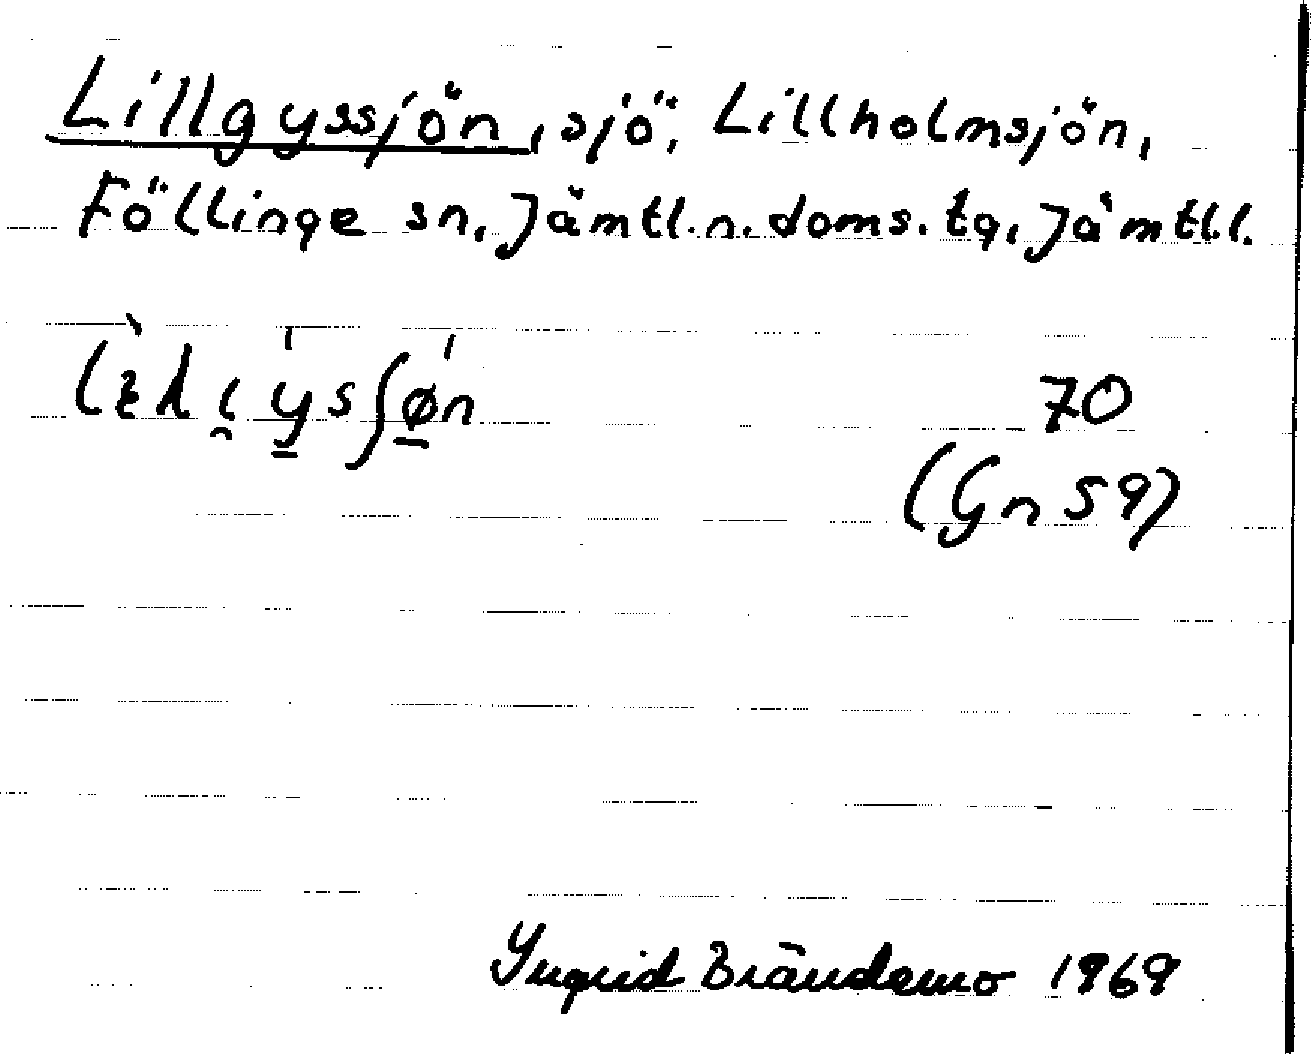 Lillgyssjön, sjö, Lillholmsjön,
Föllinge sn, Jämtl.n.doms.tg, Jämtl.l.
70
(Gn 59)
Ingrid Brändemo 1969